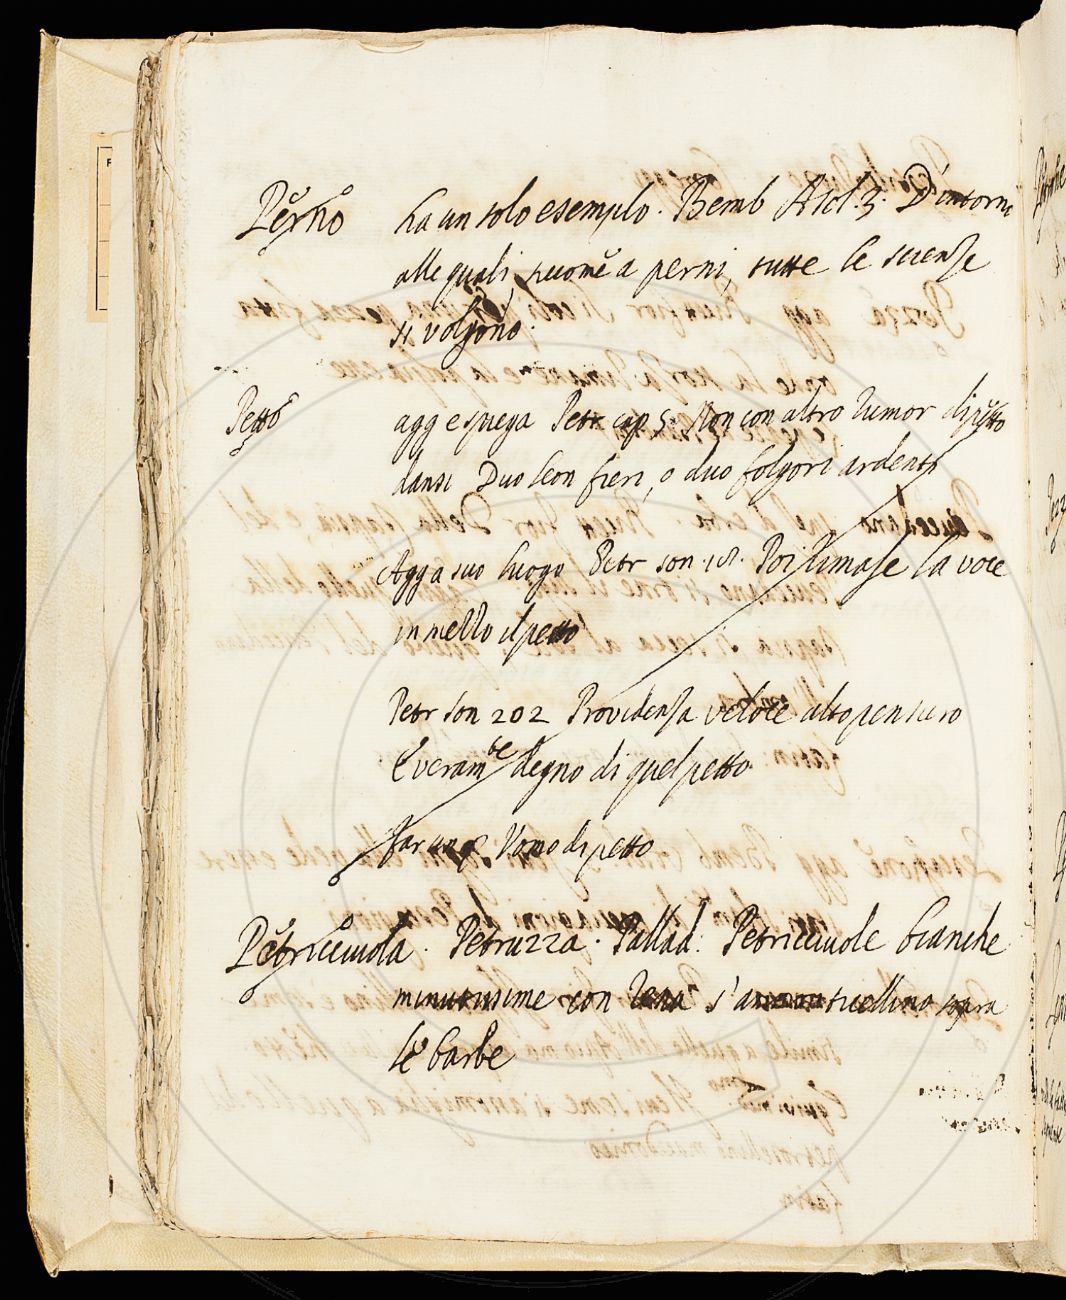 Perno ha un solo esemplo. Bemb Asol. 3. D'intorno
alle quali, sicome a perni, tutte le scienze
si volgono.
Petto agg e spiega Petr cap 5. Non con altro rumor di petto
dansi Duo leon fieri, o duo folgori ardenti
Agg a suo luogo Petr son .18. Poi rimase la voce
in mezzo il petto
Petr son 202 Providenza veloce alto pensiero
E veram.te degno di quel petto.
Vomo di petto.
Petricciuola. Petruzza. Pallad. Petricciuole bianche
minutissime con rena s' sopra
le barbe